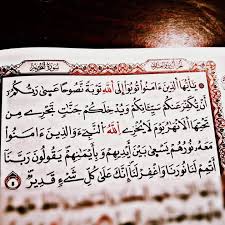 سورة التحريم
يَٰٓأَيُّهَا ٱلَّذِينَ ءَامَنُوا۟ تُوبُوٓا۟ إِلَى ٱللَّهِ تَوْبَةً نَّصُوحًا عَسَىٰ رَبُّكُمْ
أَن يُكَفِّرَ عَنكُمْ سَيِّـَٔاتِكُمْ وَيُدْخِلَكُمْ جَنَّٰتٍ تَجْرِى مِن
تَحْتِهَا ٱلْأَنْهَٰرُ يَوْمَ لَا يُخْزِى ٱللَّهُ ٱلنَّبِىَّ وَٱلَّذِينَ ءَامَنُوا۟
مَعَهُۥ نُورُهُمْ يَسْعَىٰ بَيْنَ أَيْدِيهِمْ وَبِأَيْمَٰنِهِمْ يَقُولُونَ رَبَّنَآ
أَتْمِمْ لَنَا نُورَنَا وَٱغْفِرْ لَنَآ إِنَّكَ عَلَىٰ كُلِّ شَىْءٍ قَدِيرٌ ٨